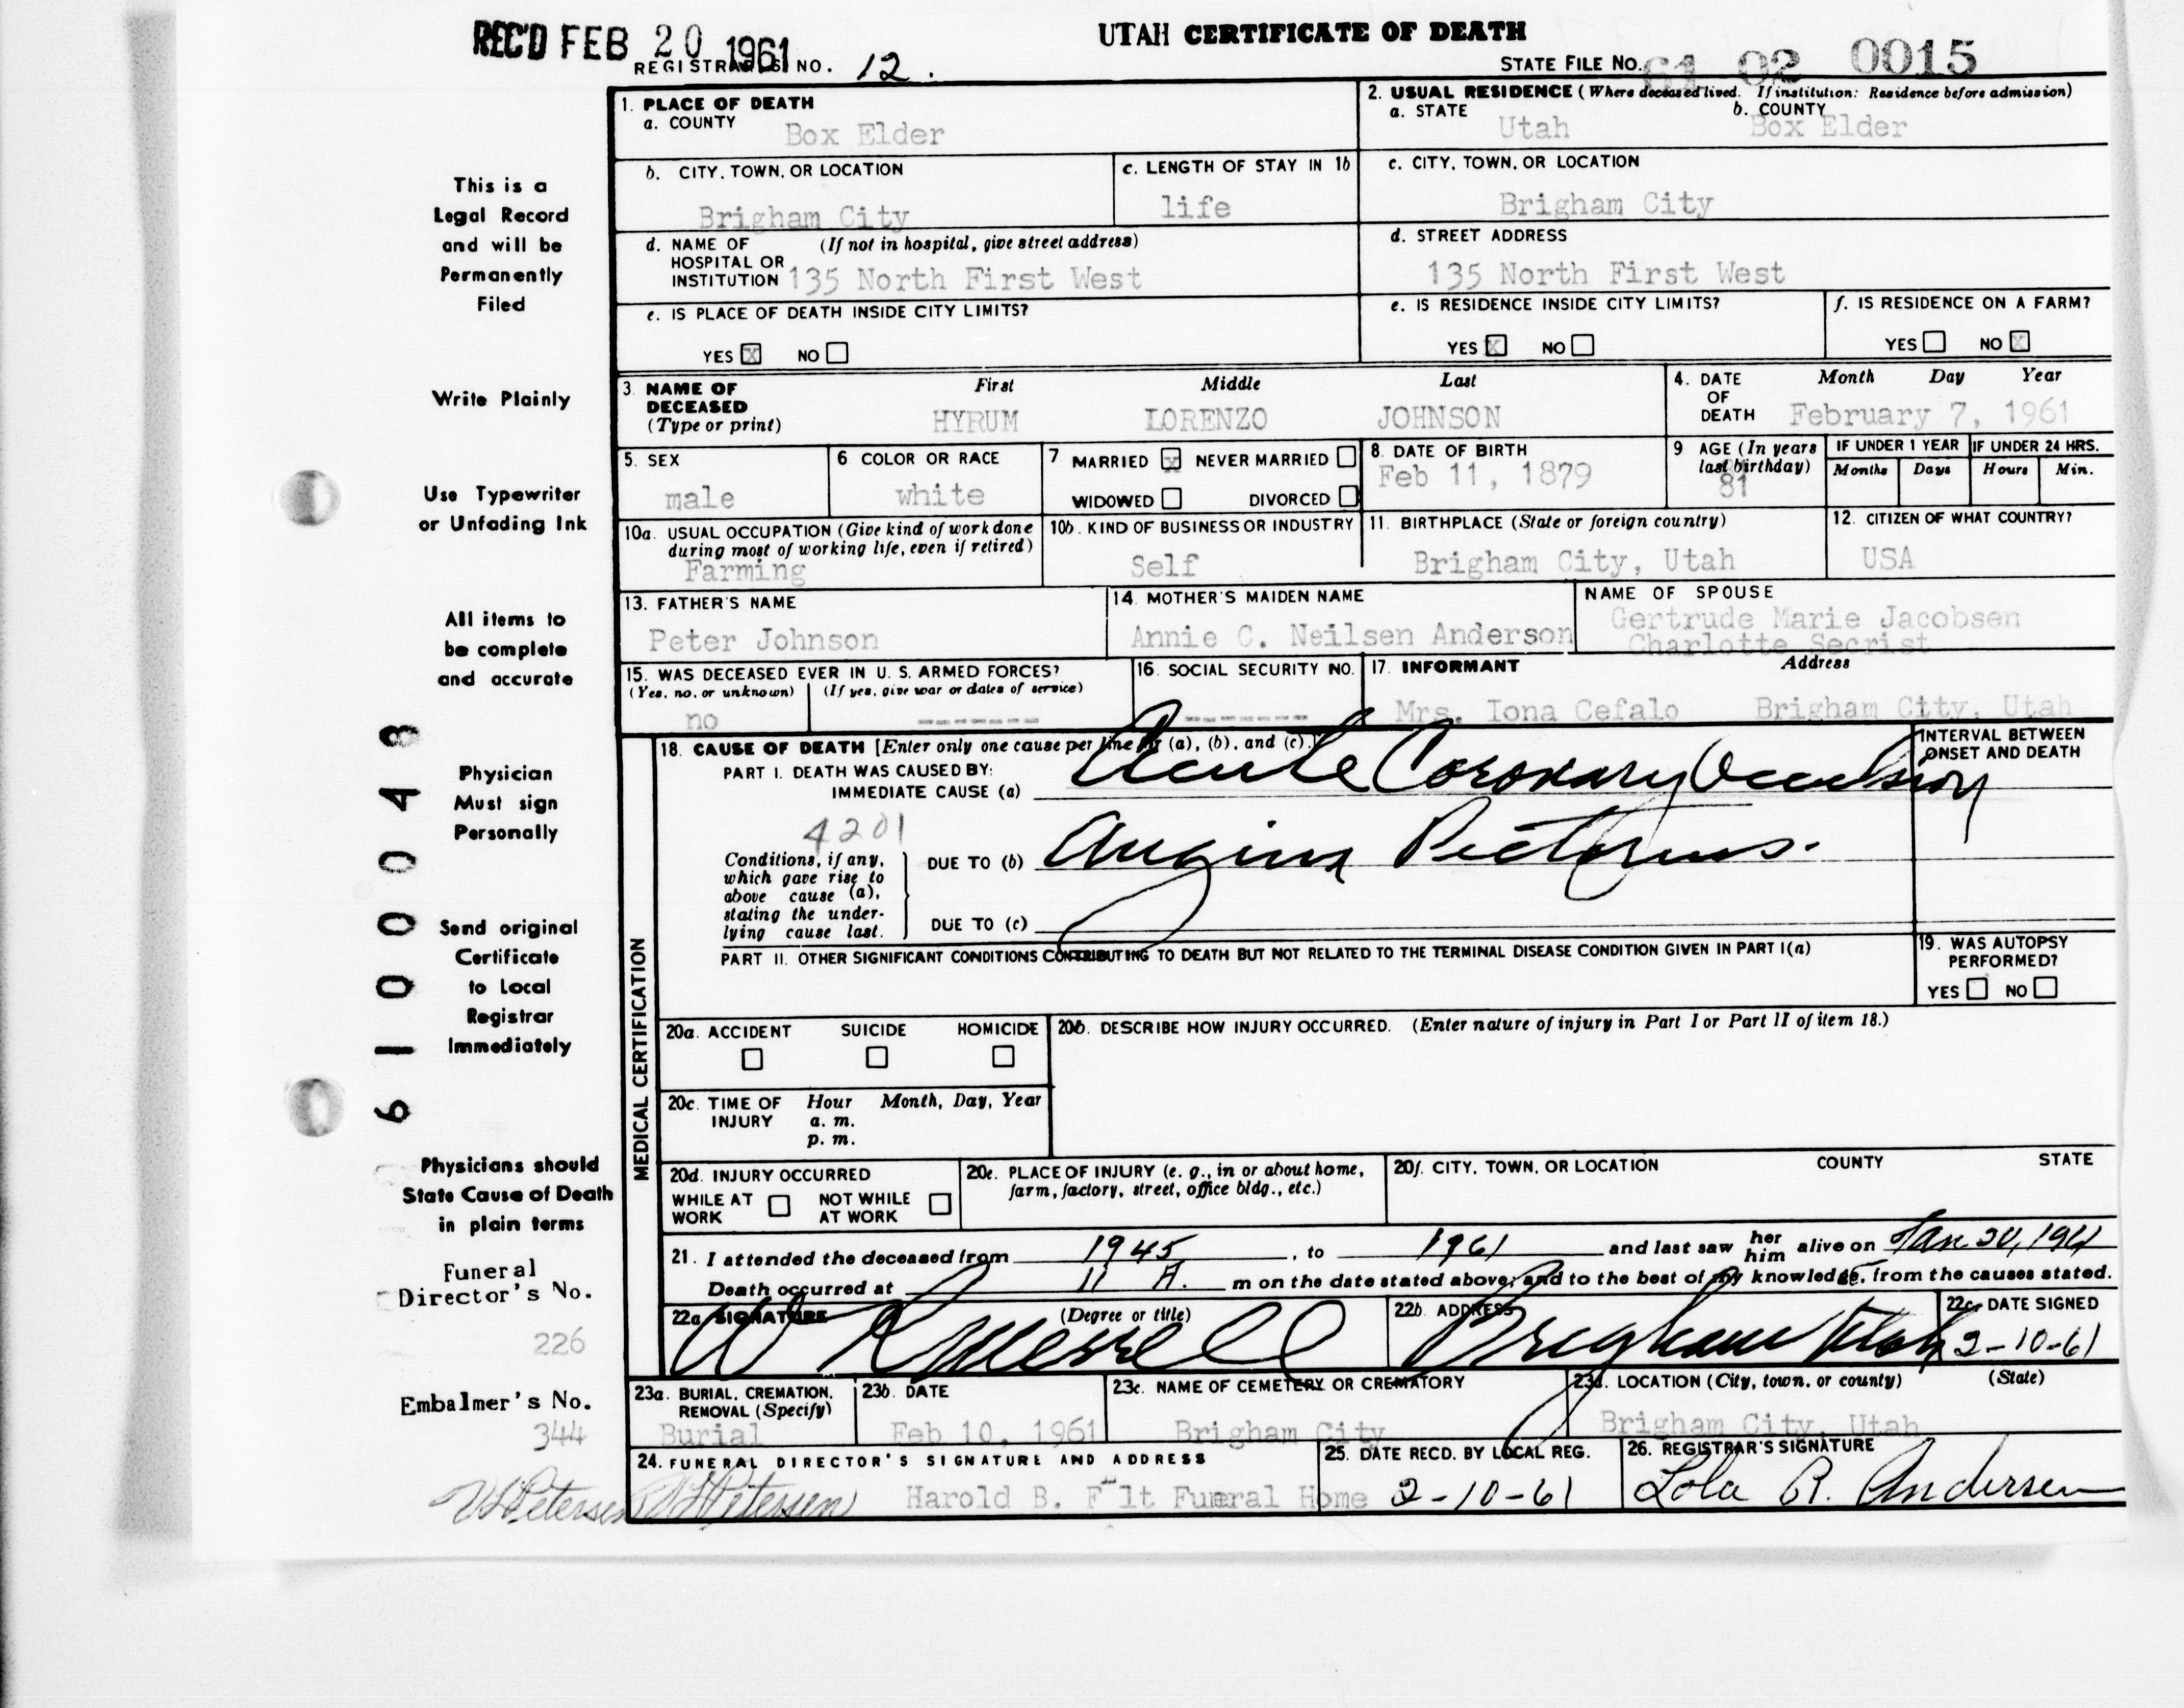 REC'D FEB 20 1961
UTAH CERTIFICATE OF DEATH
REGISTRAR'S NO. 12.
STATE FILE NO. 61 02 0015
This is a
Legal Record
and will be
Permanently
Filed
Write Plainly
Use Typewriter
or Unfading Ink
All items to
be complete
and accurate
Physician
Must sign
Personally
Send original
Certificate
to Local
Registrar
Immediately
Physicians should
State Cause of Death
in plain terms
Funeral
Director's No.
226
Embalmer's No.
344
61000 43
1. PLACE OF DEATH
a. COUNTY Box Elder
2. USUAL RESIDENCE (Where deceased lived. If institution: Residence before admission)
a. STATE Utah b. COUNTY Box Elder
b. CITY, TOWN, OR LOCATION Brigham City
c. LENGTH OF STAY IN 1b life
c. CITY, TOWN, OR LOCATION Brigham City
d. NAME OF HOSPITAL OR INSTITUTION (If not in hospital, give street address) 135 North First West
d. STREET ADDRESS 135 North First West
e. IS PLACE OF DEATH INSIDE CITY LIMITS?
YES X NO
e. IS RESIDENCE INSIDE CITY LIMITS?
YES X NO
f. IS RESIDENCE ON A FARM?
YES NO X
3. NAME OF DECEASED (Type or print)
First Middle Last
HYRUM LORENZO JOHNSON
4. DATE OF DEATH Month Day Year
February 7, 1961
5. SEX male
6 COLOR OR RACE white
7 MARRIED X NEVER MARRIED
WIDOWED DIVORCED
8. DATE OF BIRTH Feb 11, 1879
9 AGE (In years last birthday) 81
IF UNDER 1 YEAR Months Days
IF UNDER 24 HRS. Hours Min.
10a. USUAL OCCUPATION (Give kind of work done during most of working life, even if retired) Farming
10b. KIND OF BUSINESS OR INDUSTRY Self
11. BIRTHPLACE (State or foreign country) Brigham City, Utah
12. CITIZEN OF WHAT COUNTRY? USA
13. FATHER'S NAME Peter Johnson
14. MOTHER'S MAIDEN NAME Annie C. Neilsen Anderson
NAME OF SPOUSE
Gertrude Marie Jacobsen
Charlotte Secrist
15. WAS DECEASED EVER IN U. S. ARMED FORCES?
(Yes, no, or unknown) (If yes, give war or dates of service)
no -------
16. SOCIAL SECURITY NO. -------
17. INFORMANT Address
Mrs. Iona Cefalo Brigham City, Utah
MEDICAL CERTIFICATION
18. CAUSE OF DEATH [Enter only one cause per line for (a), (b), and (c).]
PART I. DEATH WAS CAUSED BY:
IMMEDIATE CAUSE (a) Acute Coronary Occlusion
4201
Conditions, if any, which gave rise to above cause (a), stating the underlying cause last.
DUE TO (b) Angina Pectorus.
DUE TO (c)
INTERVAL BETWEEN ONSET AND DEATH
PART II. OTHER SIGNIFICANT CONDITIONS CONTRIBUTING TO DEATH BUT NOT RELATED TO THE TERMINAL DISEASE CONDITION GIVEN IN PART I(a)
19. WAS AUTOPSY PERFORMED?
YES NO
20a. ACCIDENT SUICIDE HOMICIDE
20b. DESCRIBE HOW INJURY OCCURRED. (Enter nature of injury in Part I or Part II of item 18.)
20c. TIME OF INJURY Hour a. m. p. m. Month, Day, Year
20d. INJURY OCCURRED
WHILE AT WORK NOT WHILE AT WORK
20e. PLACE OF INJURY (e. g., in or about home, farm, factory, street, office bldg., etc.)
20f. CITY, TOWN, OR LOCATION COUNTY STATE
21. I attended the deceased from 1945, to 1961 and last saw her him alive on Jan 20, 1961
Death occurred at 11 A. m on the date stated above; and to the best of my knowledge, from the causes stated.
22a. SIGNATURE (Degree or title)
22b. ADDRESS Brigham Utah
22c. DATE SIGNED 2-10-61
23a. BURIAL, CREMATION, REMOVAL (Specify) Burial
23b. DATE Feb 10, 1961
23c. NAME OF CEMETERY OR CREMATORY Brigham City
23d. LOCATION (City, town, or county) (State) Brigham City, Utah
24. FUNERAL DIRECTOR'S SIGNATURE AND ADDRESS
Petersen Petersen Harold B. F lt Funeral Home
25. DATE RECD. BY LOCAL REG. 2-10-61
26. REGISTRAR'S SIGNATURE Lola R. Andersen